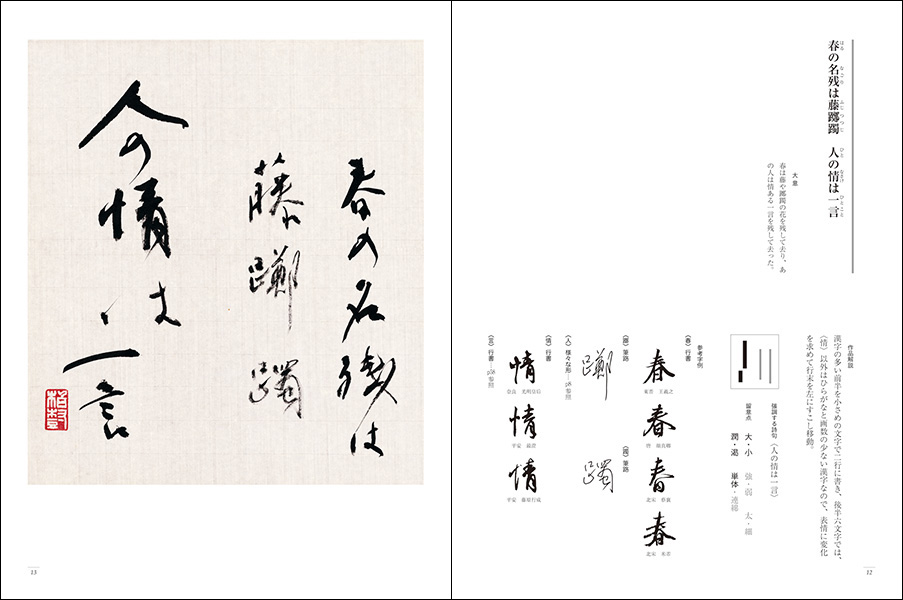 春の名残は藤躑躅　人の情は一言
はる　なごり　ふじつつじ　ひと　なさけ　ひとこと
大意
春は藤や躑躅の花を残して去り、あ
の人は情ある一言を残して去った。
作品解説
漢字の多い前半を小さめの文字で二行に書き、後半六文字では、
〈情〉以外はひらがなと画数の少ない漢字なので、表情に変化
を求めて行末を左にすこし移動。
強調する詩句〈人の情は一言〉
留意点　大・小　強・弱　太・細
潤・渇　単体・連綿
参考字例
〈春〉行書
春　東晋　王羲之
春　唐　
春　北宋　蔡襄
春　北宋　米芾
〈躑〉筆路
躑
〈躅〉筆路
躅
〈人〉様々な形
参照
〈情〉行書
情　奈良　光明皇后
情　平安　最澄
情　平安　藤原行成
〈言〉行書
参照
12
春の名残は
藤躑躅
人の情は
一言
13